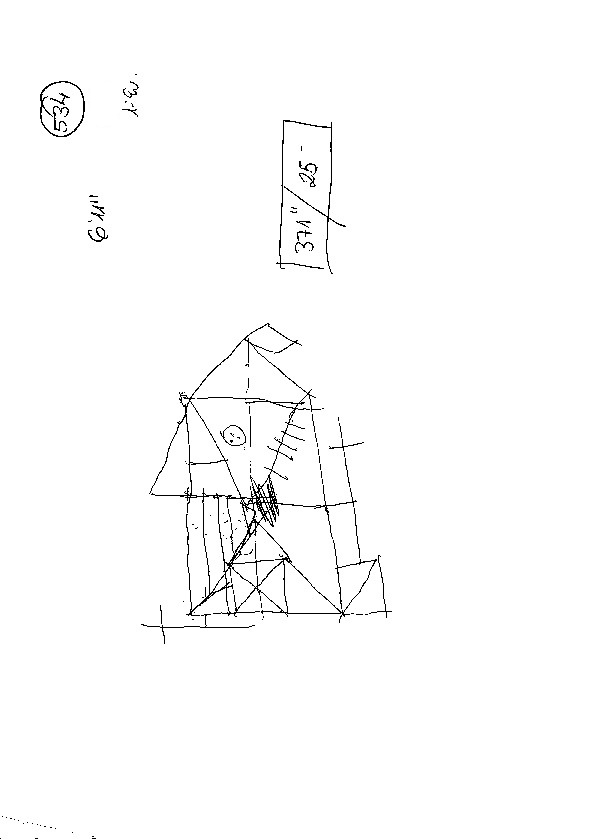 534
6'11"
371" / 25